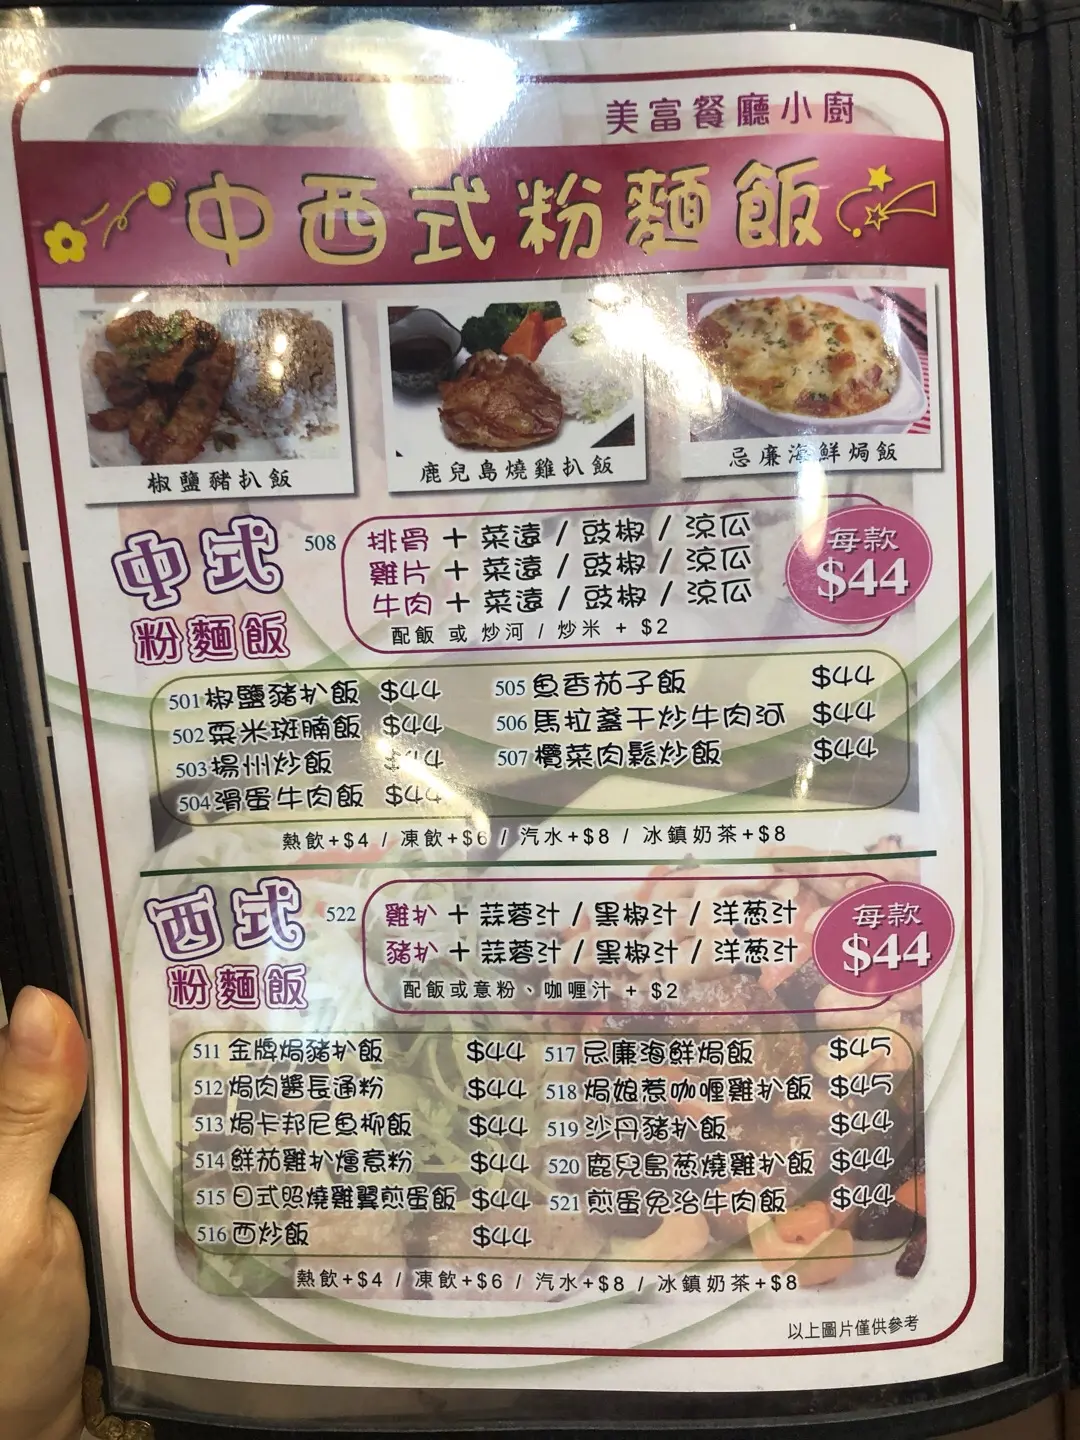 美富餐廳小廚
中西式粉麵飯
椒鹽豬扒飯
鹿兒島燒雞扒飯
忌廉海鮮焗飯
中式
粉麵飯
508
排骨 + 菜遠 / 豉椒 / 涼瓜
雞片 + 菜遠 / 豉椒 / 涼瓜
牛肉 + 菜遠 / 豉椒 / 涼瓜
配飯 或 炒河 / 炒米 + $2
每款
$44
501 椒鹽豬扒飯 $44
502 粟米斑腩飯 $44
503 揚州炒飯 $44
504 滑蛋牛肉飯 $44
505 魚香茄子飯 $44
506 馬拉盞干炒牛肉河 $44
507 欖菜肉鬆炒飯 $44
熱飲+$4 / 凍飲+$6 / 汽水+$8 / 冰鎮奶茶+$8
西式
粉麵飯
522
雞扒 + 蒜蓉汁 / 黑椒汁 / 洋葱汁
豬扒 + 蒜蓉汁 / 黑椒汁 / 洋葱汁
配飯或意粉、咖喱汁 + $2
每款
$44
511 金牌焗豬扒飯 $44
512 焗肉醬長通粉 $44
513 焗卡邦尼魚柳飯 $44
514 鮮茄雞扒燴意粉 $44
515 日式照燒雞翼煎蛋飯 $44
516 西炒飯 $44
517 忌廉海鮮焗飯 $45
518 焗娘惹咖喱雞扒飯 $45
519 沙丹豬扒飯 $44
520 鹿兒島葱燒雞扒飯 $44
521 煎蛋免治牛肉飯 $44
熱飲+$4 / 凍飲+$6 / 汽水+$8 / 冰鎮奶茶+$8
以上圖片僅供參考